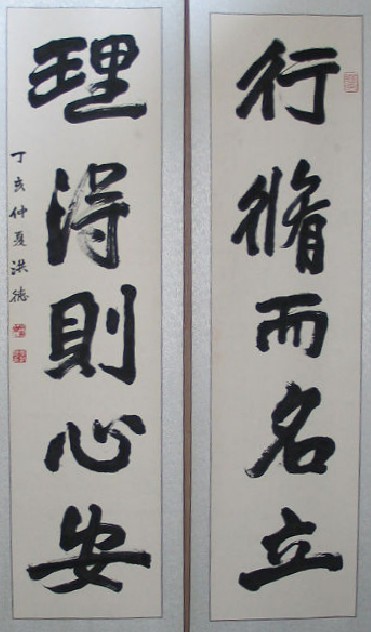 行脩而名立
理得則心安
丁亥仲夏洪德